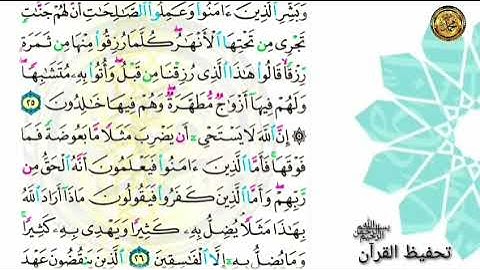 وَبَشِّرِ ٱلَّذِينَ ءَامَنُوا۟ وَعَمِلُوا۟ ٱلصَّـٰلِحَـٰتِ أَنَّ لَهُمْ جَنَّـٰتٍ
تَجْرِى مِن تَحْتِهَا ٱلْأَنْهَـٰرُ ۖ كُلَّمَا رُزِقُوا۟ مِنْهَا مِن ثَمَرَةٍ
رِّزْقًا ۙ قَالُوا۟ هَـٰذَا ٱلَّذِى رُزِقْنَا مِن قَبْلُ ۖ وَأُتُوا۟ بِهِۦ مُتَشَـٰبِهًا ۖ
وَلَهُمْ فِيهَآ أَزْوَٰجٌ مُّطَهَّرَةٌ ۖ وَهُمْ فِيهَا خَـٰلِدُونَ ٢٥
۞ إِنَّ ٱللَّهَ لَا يَسْتَحْىِۦٓ أَن يَضْرِبَ مَثَلًا مَّا بَعُوضَةً فَمَا
فَوْقَهَا ۚ فَأَمَّا ٱلَّذِينَ ءَامَنُوا۟ فَيَعْلَمُونَ أَنَّهُ ٱلْحَقُّ مِن
رَّبِّهِمْ ۖ وَأَمَّا ٱلَّذِينَ كَفَرُوا۟ فَيَقُولُونَ مَاذَآ أَرَادَ ٱللَّهُ
بِهَـٰذَا مَثَلًا ۘ يُضِلُّ بِهِۦ كَثِيرًا وَيَهْدِى بِهِۦ كَثِيرًا ۚ
وَمَا يُضِلُّ بِهِۦٓ إِلَّا ٱلْفَـٰسِقِينَ ٢٦ ٱلَّذِينَ يَنقُضُونَ عَهْدَ
تحفيظ القرآن